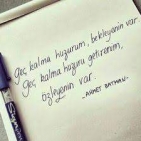 Geç kalma huzurum, bekleyenin var.
Geç kalma huzuru getirenim,
özleyenin var.
- AHMET BATMAN -